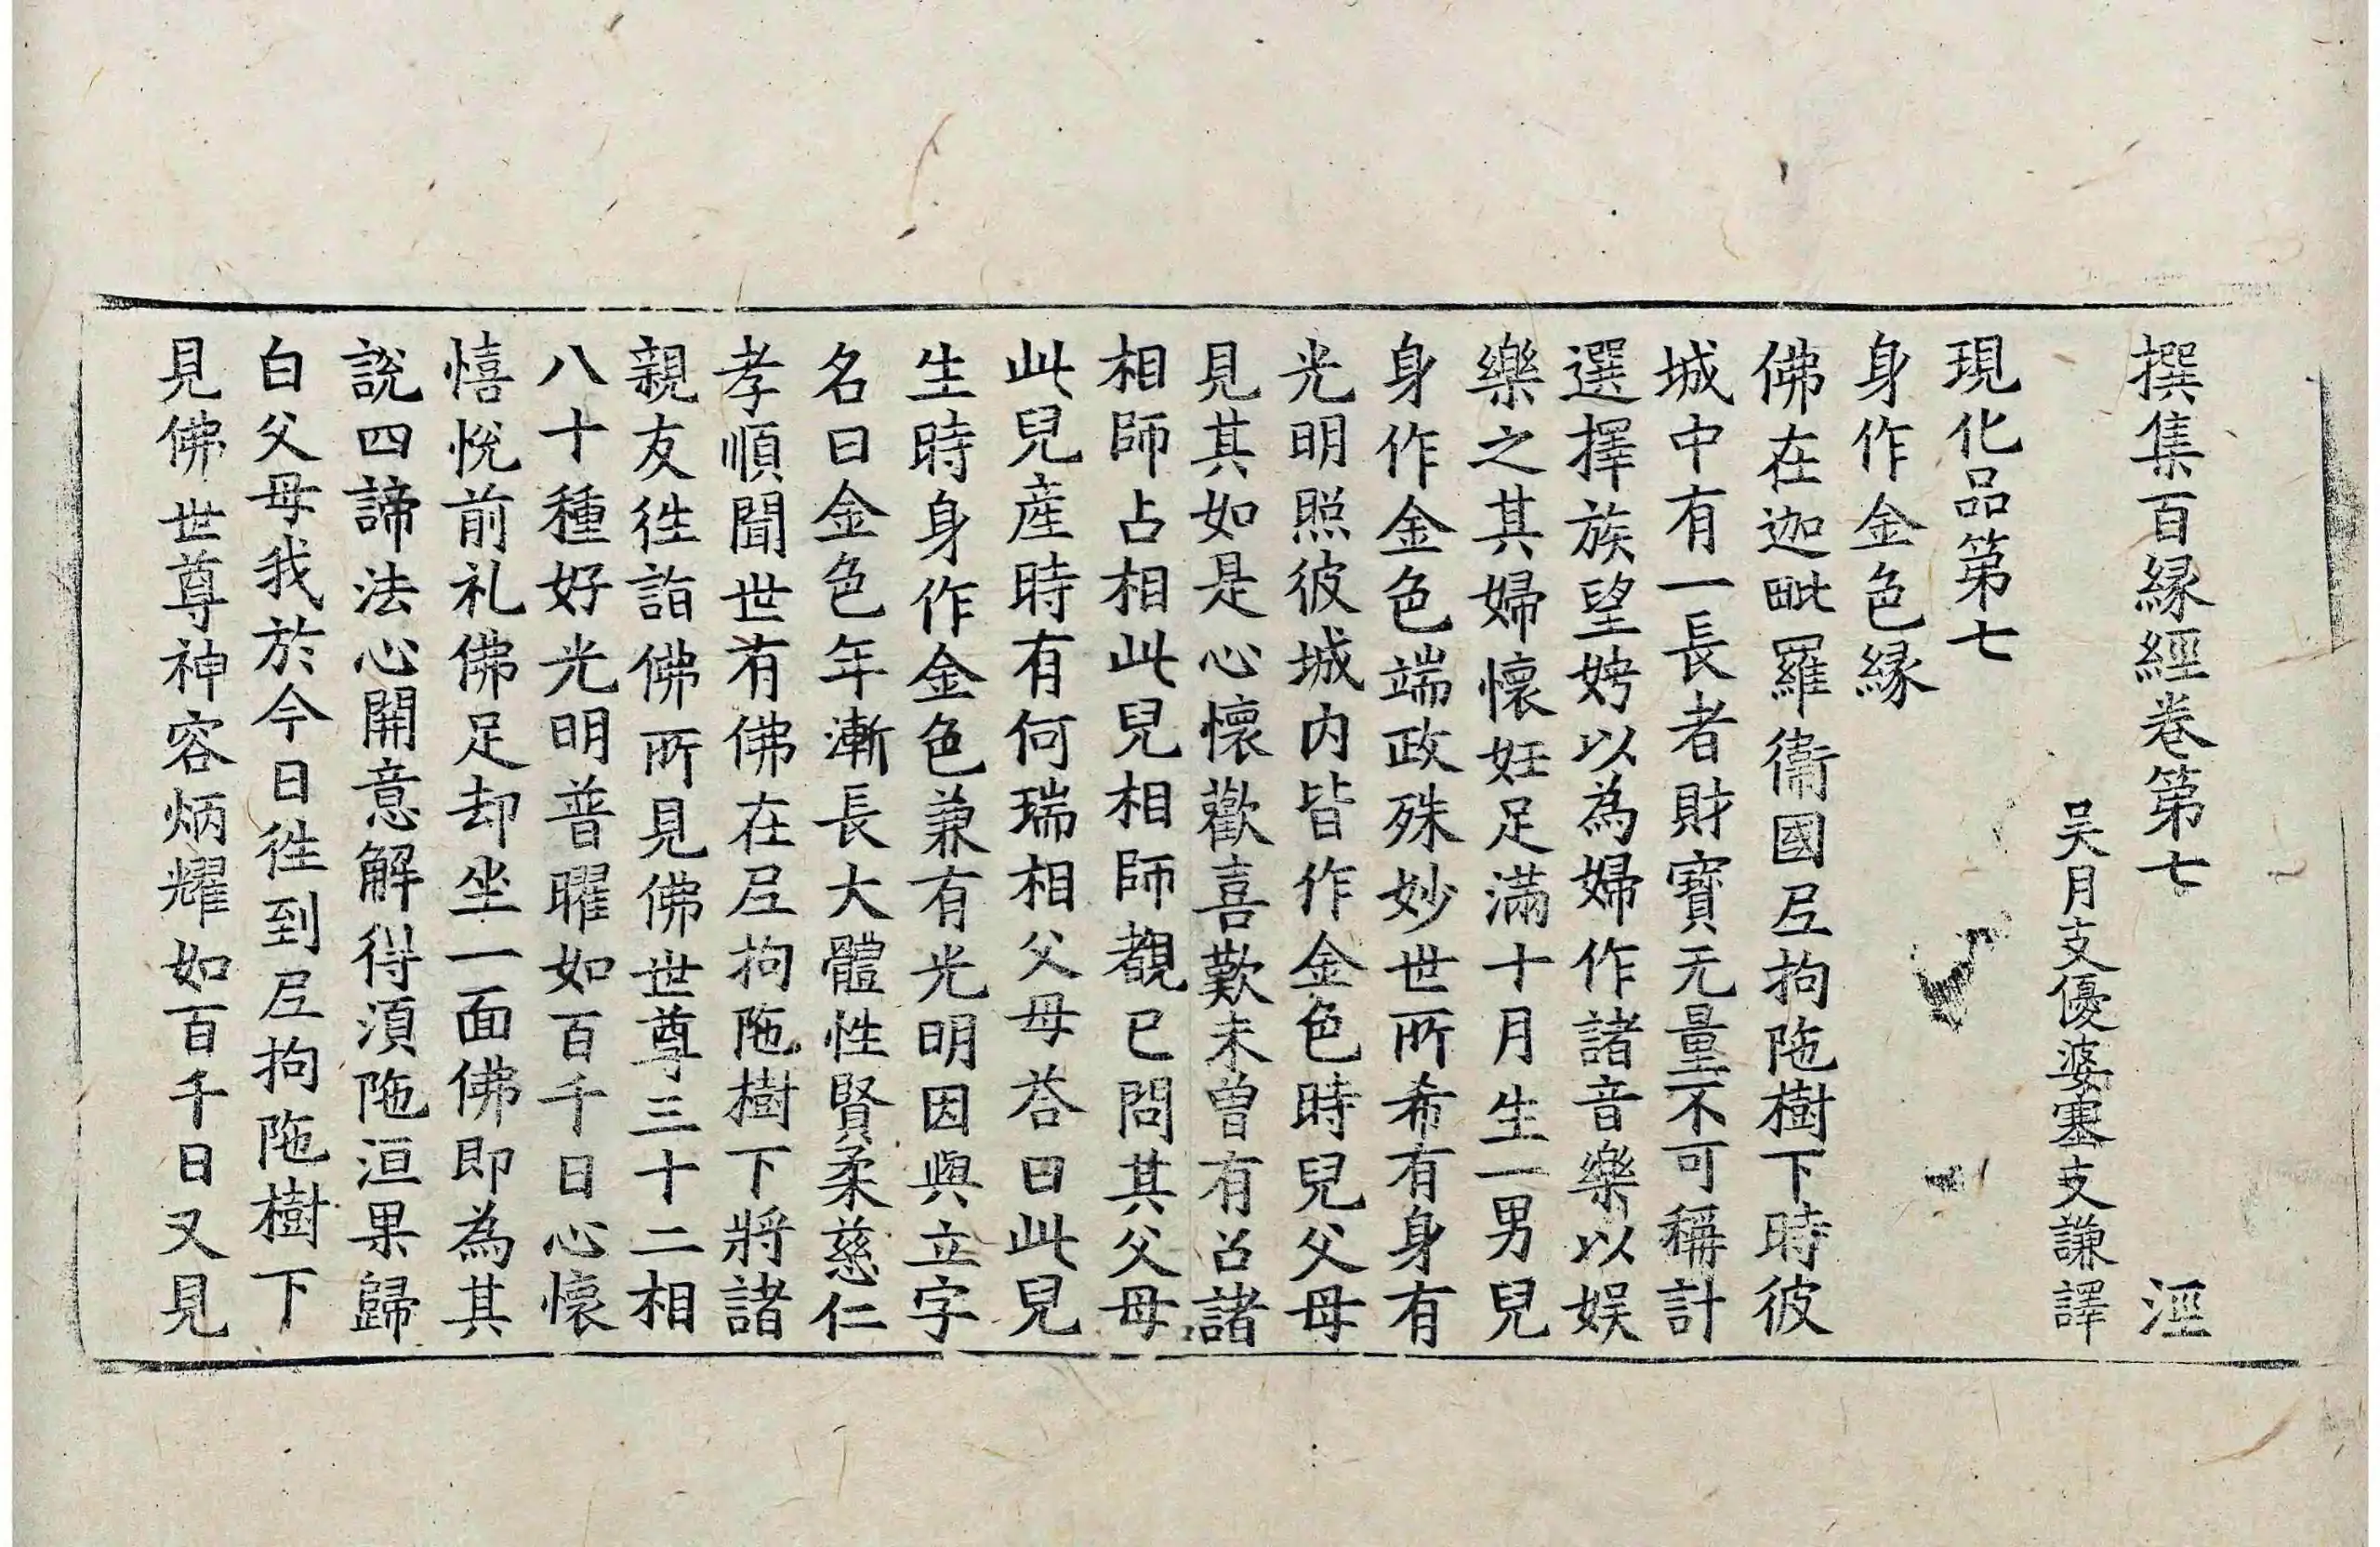 撰集百縁經卷第七 涇
吴月支優婆塞支謙譯
現化品第七
身作金色縁
佛在迦毗羅衞國尼拘陁樹下時彼
城中有一長者財寶无量不可稱計
選擇族望娉以為婦作諸音樂以娱
樂之其婦懷妊足滿十月生一男兒
身作金色端政殊妙世所希有身有
光明照彼城内皆作金色時兒父母
見其如是心懷歡喜歎未曾有召諸
相師占相此兒相師覩已問其父母
此兒産時有何瑞相父母荅曰此兒
生時身作金色兼有光明因與立字
名曰金色年漸長大體性賢柔慈仁
孝順聞世有佛在尼拘陁樹下將諸
親友徃詣佛所見佛世尊三十二相
八十種好光明普曜如百千日心懷
憘悅前礼佛足却坐一面佛即為其
說四諦法心開意解得湏陁洹果歸
白父母我於今日徃到尼拘陁樹下
見佛世尊神容炳耀如百千日又見